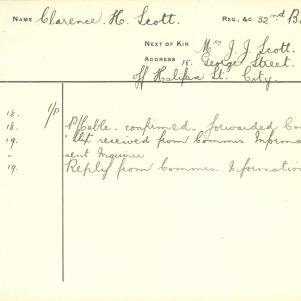 NAME Clarence. H. Scott. REG., &C. 52nd B
NEXT OF KIN Mrs J. J. Scott.
ADDRESS 15. George Street.
off Halifax St. City.
18. I/P
18. P/Cable. confirmed. forwarded Co
19. received from Commrs. Informa
" sent Inquirer
19. Reply from Commrs. Information